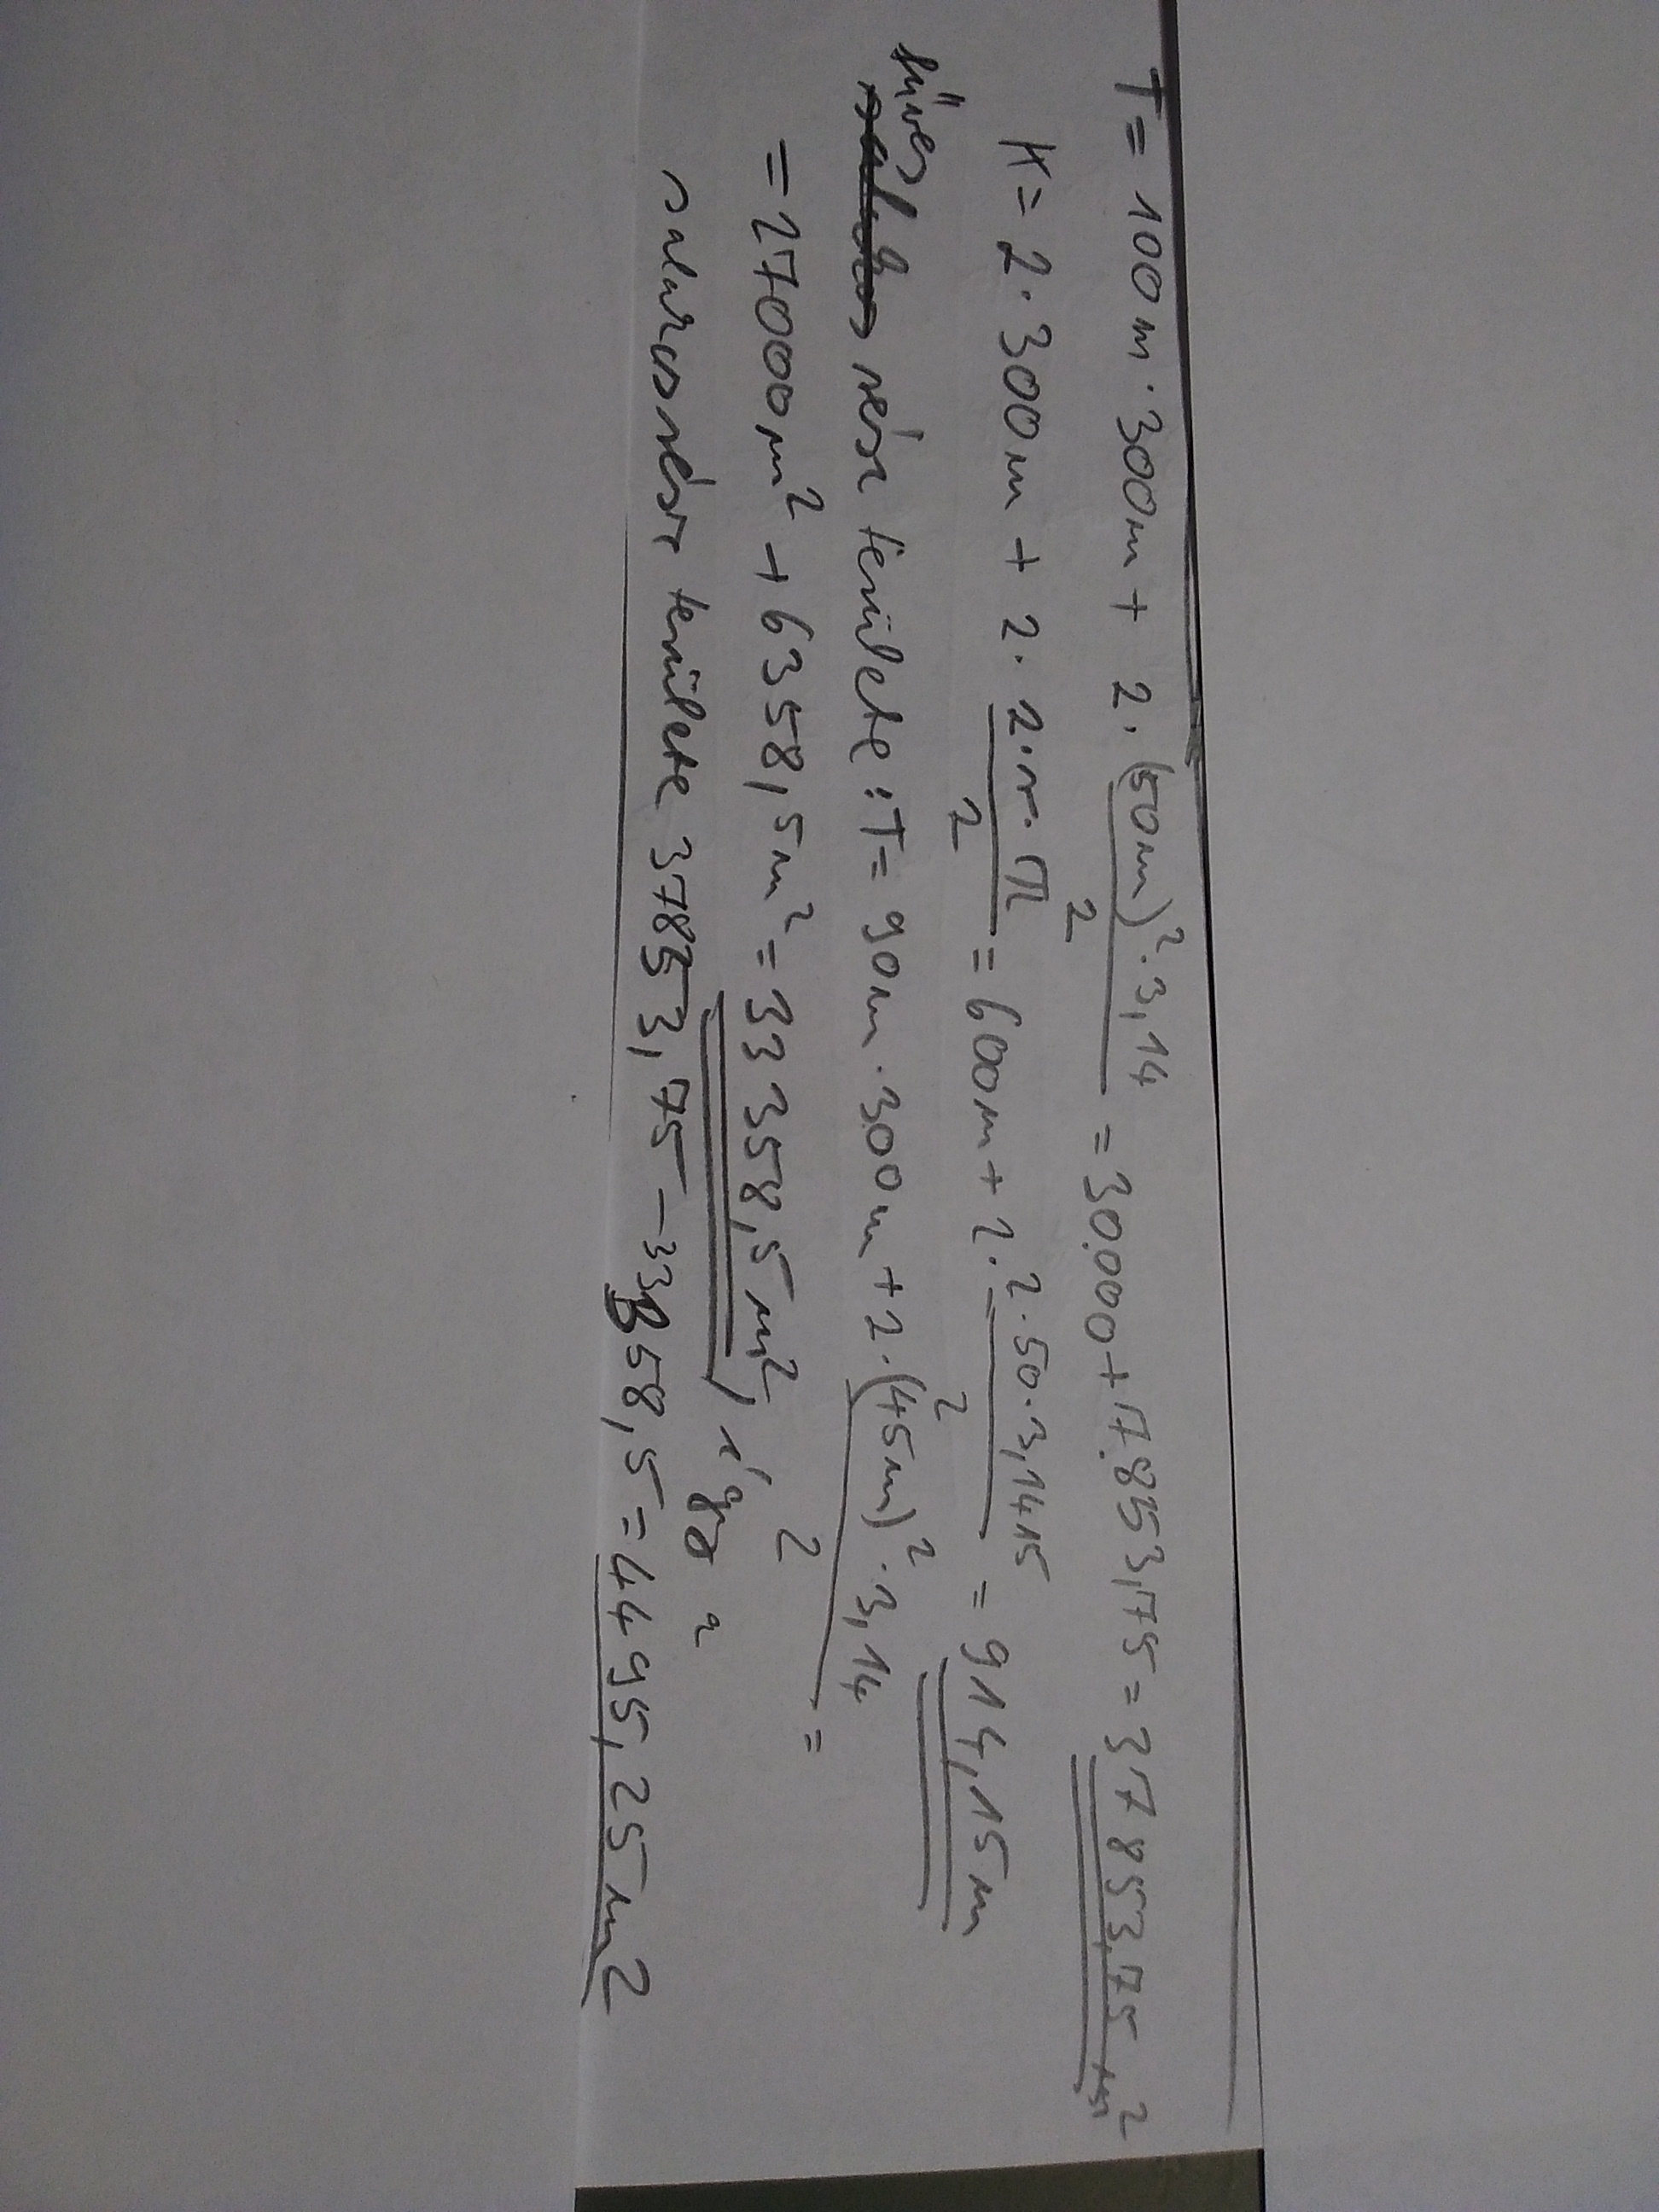 T = 100m · 300m + 2 · (50m)² · 3,14 / 2 = 30.000 + 7.853,75 = 37853,75 m²
K = 2 · 300m + 2 · 2·r·π / 2 = 600m + 2 · 2·50·3,1415 / 2 = 914,15m
füves rész területe : T = 90m · 300m + 2 · (45m)² · 3,14 / 2 =
= 27000m² + 6358,5m² = 33358,5m², így a
salakos rész területe 37853,75 - 33358,5 = 4495,25m²